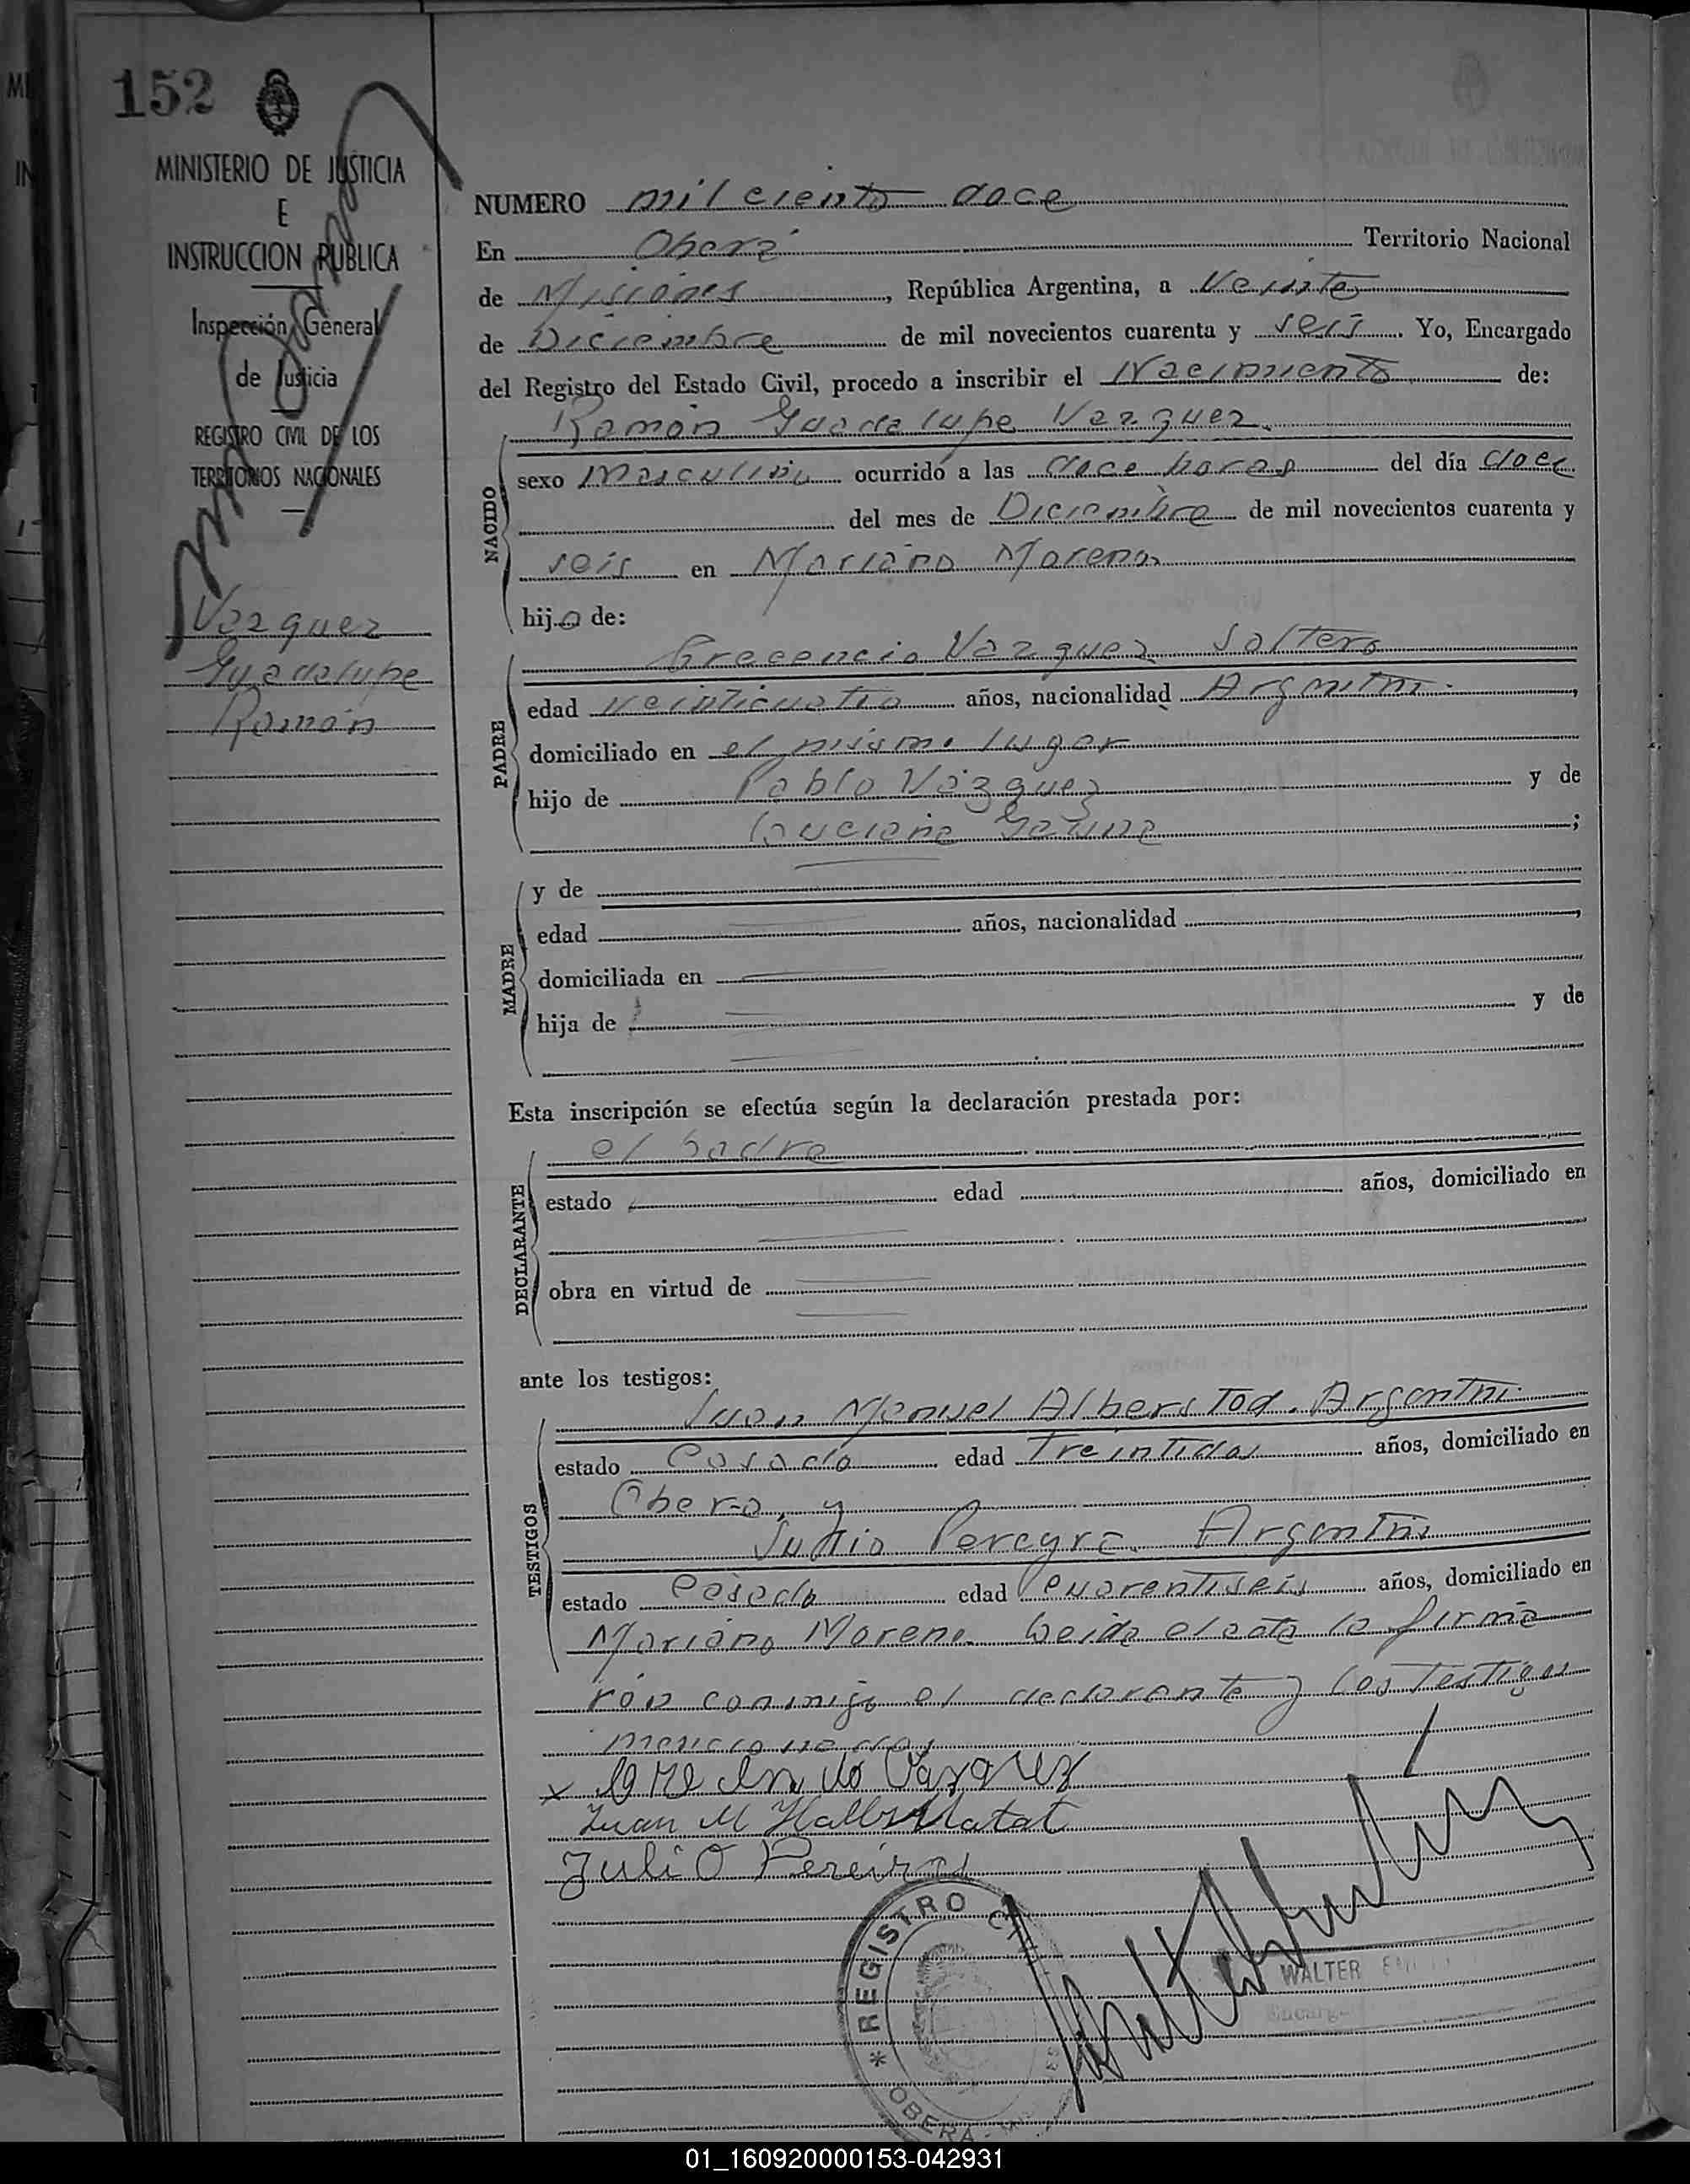 152
MINISTERIO DE JUSTICIA
E
INSTRUCCION PUBLICA
Inspección General
de Justicia
REGISTRO CIVIL DE LOS
TERRITORIOS NACIONALES
Vazquez
Guadalupe
Ramón
NUMERO mil ciento doce
En Oberá Territorio Nacional
de Misiones, República Argentina, a Veinte
de Diciembre de mil novecientos cuarenta y seis. Yo, Encargado
del Registro del Estado Civil, procedo a inscribir el Nacimiento de:
Ramón Guadalupe Vazquez
NACIDO
sexo masculino ocurrido a las doce horas del día doce
del mes de Diciembre de mil novecientos cuarenta y
seis en Mariano Moreno
hijo de:
PADRE
Crecencio Vazquez Soltero
edad veinticuatro años, nacionalidad Argentino
domiciliado en el mismo lugar
hijo de Pablo Vázquez y de
Luciana ;
MADRE
y de
edad años, nacionalidad ,
domiciliada en
hija de y de
Esta inscripción se efectúa según la declaración prestada por:
el padre
DECLARANTE
estado edad años, domiciliado en
obra en virtud de
ante los testigos:
TESTIGOS
Juan Manuel Argentino
estado Casado edad treintidos años, domiciliado en
Obera, y
Julio Pereyra Argentino
estado Casado edad cuarentiseis años, domiciliado en
Mariano Moreno Leida el acta la firma
ron conmigo el declarante y los testigos
mencionados
x Vazquez
Juan M
Julio Pereira
REGISTRO CIVIL
* OBERA -
WALTER
Encarg
01_160920000153-042931